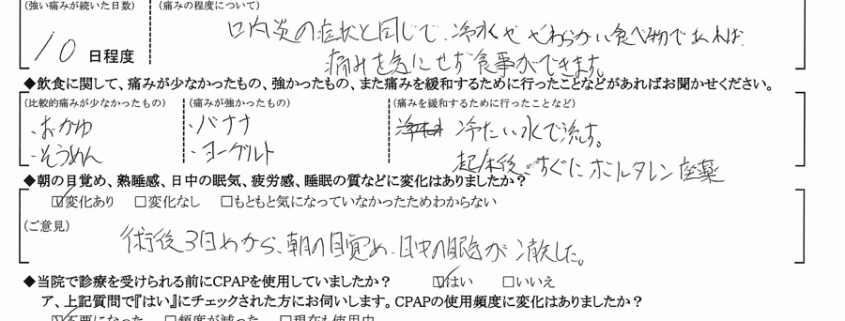 (強い痛みが続いた日数) (痛みの程度について)
10 日程度
口内炎の症状と同じで、冷水や やわらかい食べ物であれば
痛みを気にせず食事ができます。
◆飲食に関して、痛みが少なかったもの、強かったもの、また痛みを緩和するために行ったことなどがあればお聞かせください。
(比較的痛みが少なかったもの) (痛みが強かったもの) (痛みを緩和するために行ったことなど)
・おかゆ ・バナナ 冷たい水で流す。
・そうめん ・ヨーグルト 起床後、すぐにボルタレン座薬
◆朝の目覚め、熟睡感、日中の眠気、疲労感、睡眠の質などに変化はありましたか?
☑変化あり □変化なし □もともと気になっていなかったためわからない
(ご意見)
術後3日めから、朝の目覚め、日中の眠気が激した。
◆当院で診療を受けられる前にCPAPを使用していましたか? ☑はい □いいえ
ア、上記質問で『はい』にチェックされた方にお伺いします。CPAPの使用頻度に変化はありましたか?
☑不要になった □頻度が減った □現在も使用中